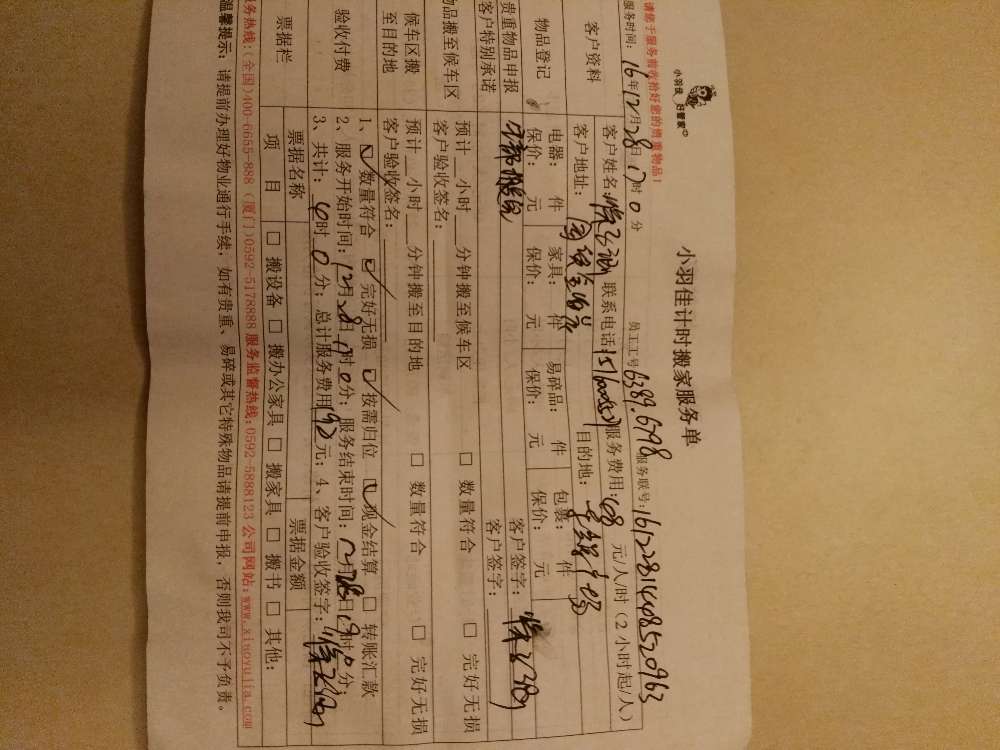 小羽佳 好管家
小羽佳计时搬家服务单
请您于服务前收拾好您的贵重物品！
服务时间：16年12月28日17时0分 员工工号6389.6798 服务联号：
客户资料
客户姓名： 联系电话 服务费用：48元/人/时（2小时起/人）
客户地址： 目的地：
物品登记
电器： 件 家具： 件 易碎品： 件 包裹： 件
保价： 元 保价： 元 保价： 元 保价： 元
贵重物品申报 客户签字：
客户特别承诺 客户签字：
物品搬至候车区
预计 小时 分钟搬至候车区 □ 数量符合 □ 完好无损
客户验收签名：
候车区搬至目的地
预计 小时 分钟搬至目的地 □ 数量符合 □ 完好无损
客户验收签名：
验收付费
1、☑数量符合 ☑完好无损 ☑按需归位 ☑现金结算 □ 转账汇款
2、服务开始时间：12月28日17时0分；服务结束时间：12月28日19时0分；
3、共计： 时0分；总计服务费用192元；4、客户验收签字：
票据栏
票据名称 票据金额
项 目 □ 搬设备 □ 搬办公家具 □ 搬家具 □ 搬书 □ 其他：
务热线：（全国）400-6655-888（厦门）0592-5178888 服务监督热线：0592-5888123 公司网站：www.xiaoyujia.com
温馨提示：请提前办理好物业通行手续，如有贵重、易碎或其它特殊物品请提前申报，否则我司不予负责。